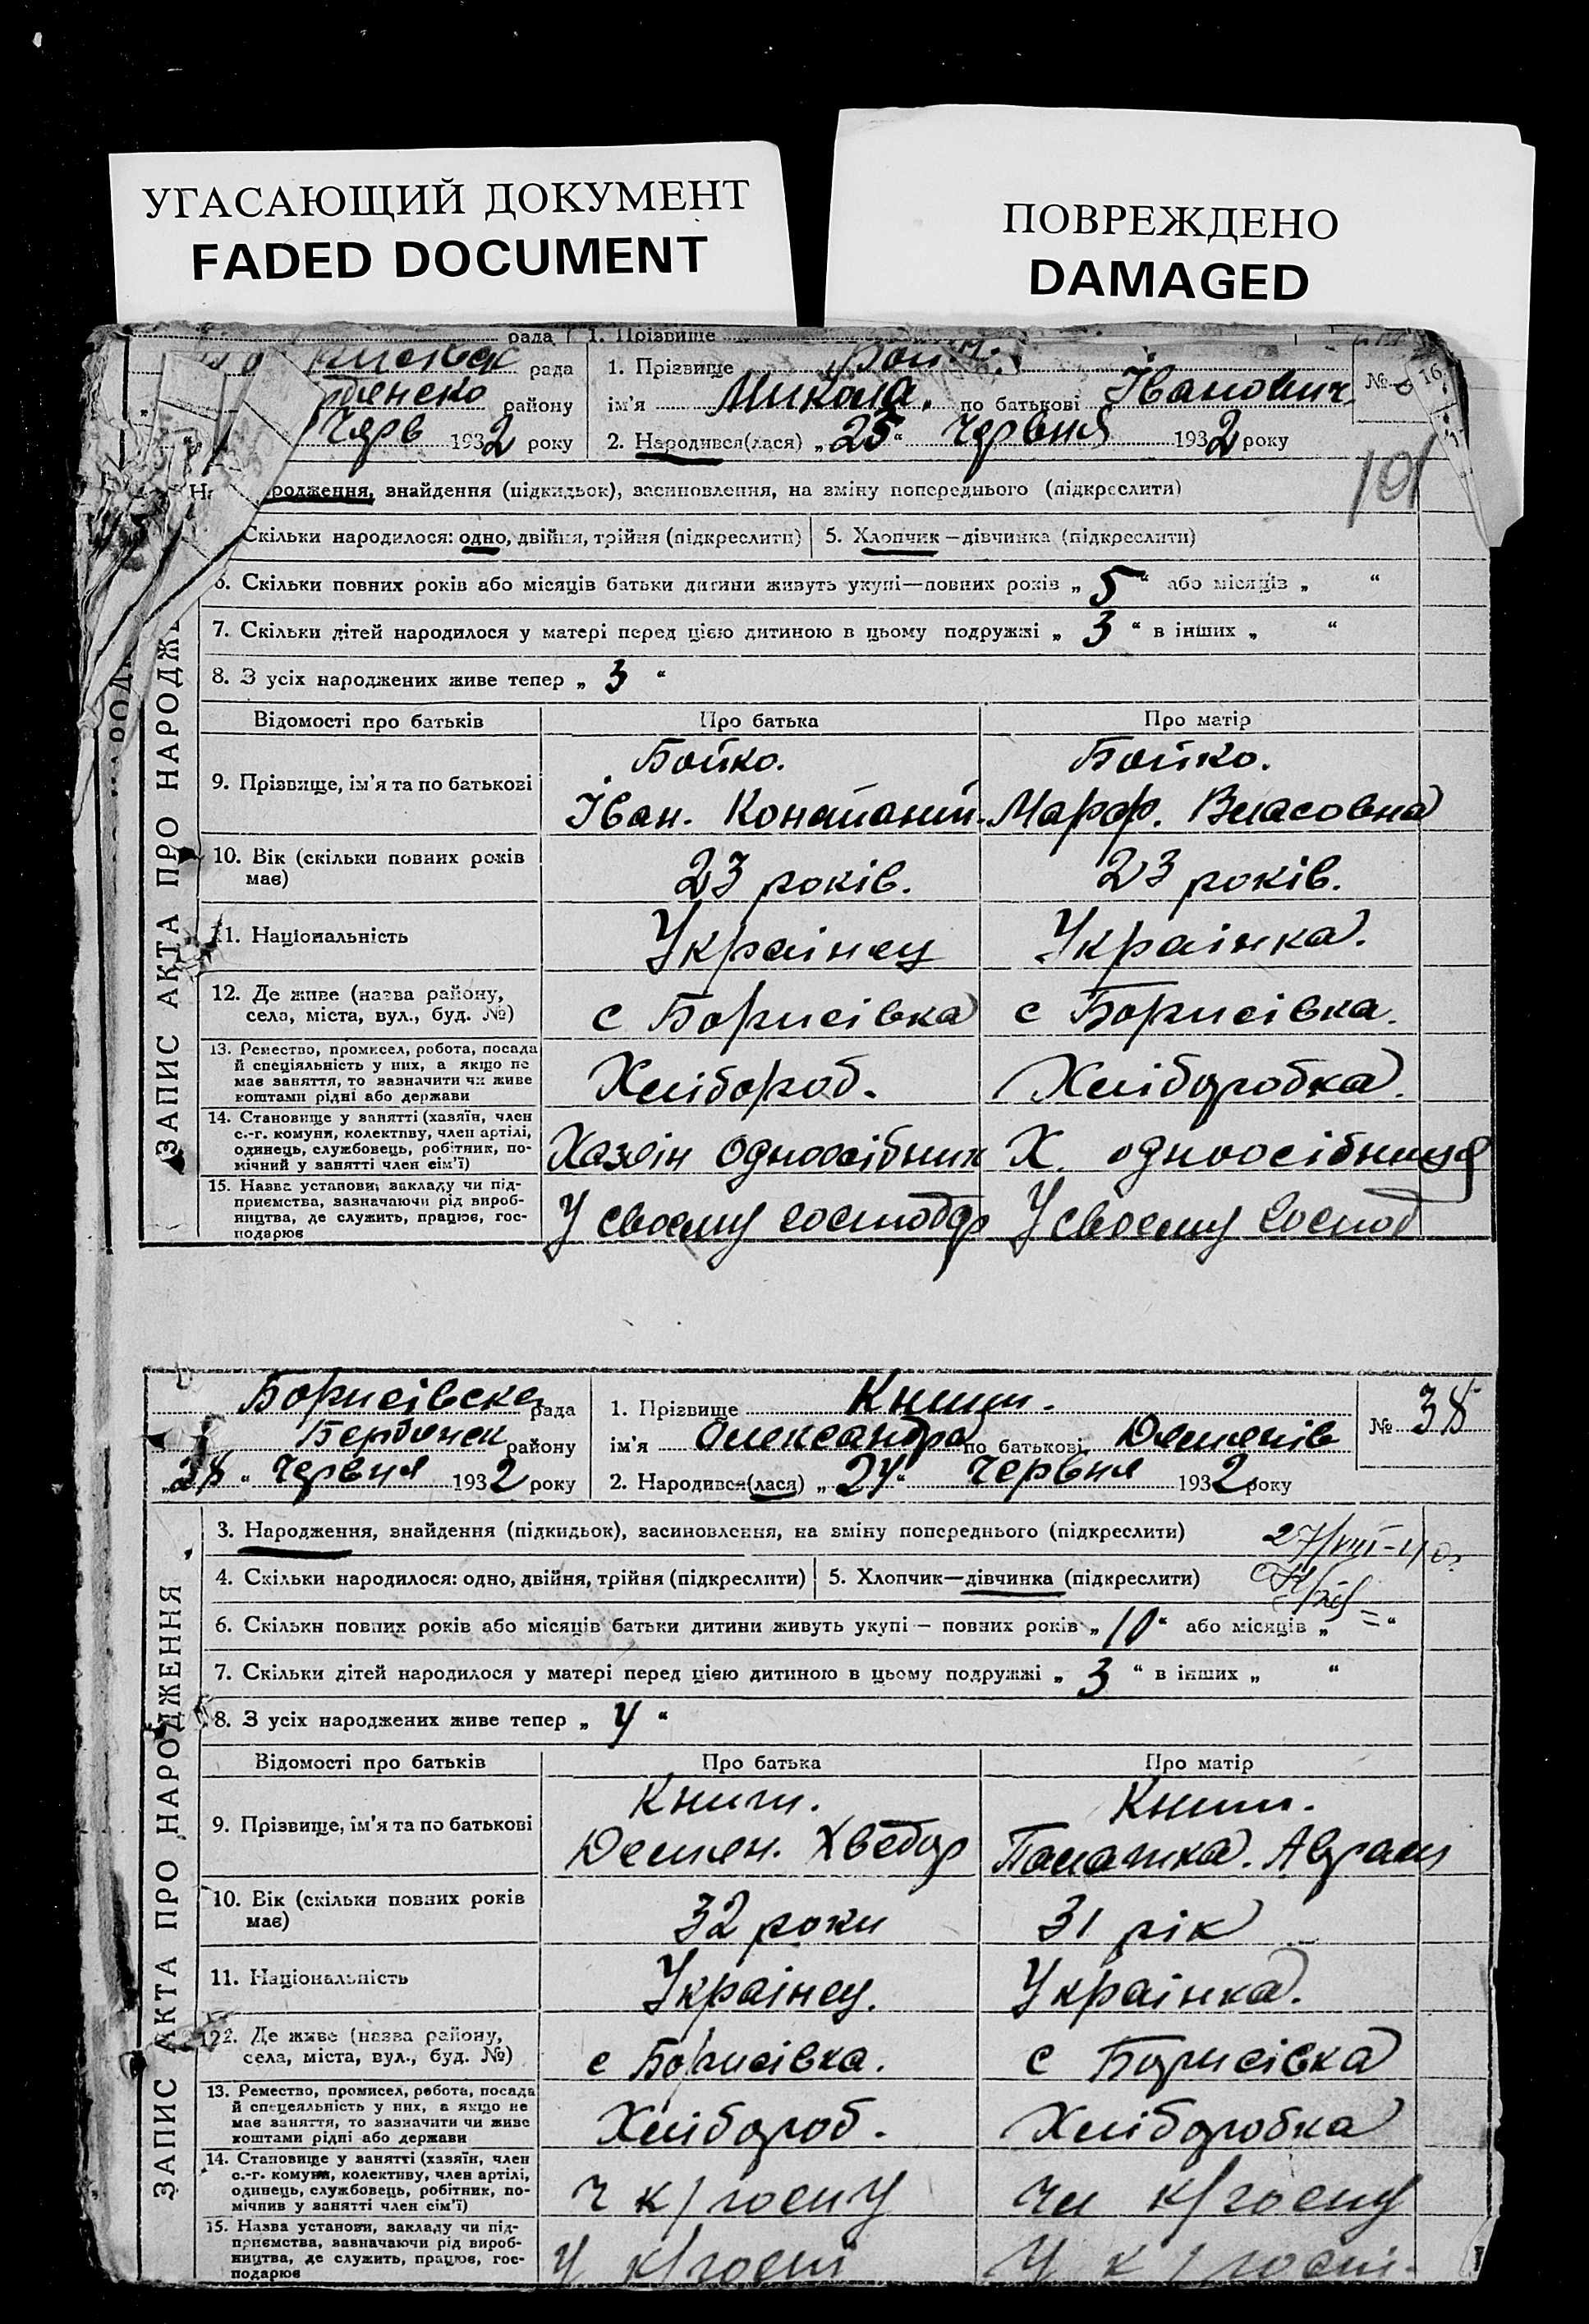 УГАСАЮЩИЙ ДОКУМЕНТ
FADED DOCUMENT
ПОВРЕЖДЕНО
DAMAGED
рада 1. Прізвище
рада 1. Прізвище
району ім'я Микола. по батькові Іванович №
Черв 1932 року 2. Народився(лася) „25“ Червня 1932 року
16
101
родження, знайдення (підкидьок), засиновлення, на зміну попереднього (підкреслити)
Скільки народилося: одно, двійня, трійня (підкреслити) 5. Хлопчик—дівчинка (підкреслити)
6. Скільки повних років або місяців батьки дитини живуть укупі—повних років „5“ або місяців „ “
7. Скільки дітей народилося у матері перед цією дитиною в цьому подружжі „3“ в інших „ “
8. З усіх народжених живе тепер „3“
Відомості про батьків Про батька Про матір
Бойко. Бойко.
9. Прізвище, ім'я та по батькові
Іван. Марф. Власовна
10. Вік (скільки повних років
має)
23 років. 23 років.
11. Національність Украінец Украінка.
12. Де живе (назва району,
села, міста, вул., буд. №)
с Борисівка с Борисівка.
13. Ремество, промисел, робота, посада
й спеціяльність у них, а якщо не
має заняття, то зазначити чи живе
коштами рідні або держави
Хлібороб. Хліборобка.
14. Становище у занятті (хазяїн, член
с.-г. комуни, колективу, член артілі,
одинець, службовець, робітник, по-
мічний у занятті член сім'ї)
Хазяін одноосібник Х. одноосібниця
15. Назва установи, закладу чи під-
приємства, зазначаючи рід вироб-
ництва, де служить, працює, гос-
подарює
У своему господар У своему господ
ЗАПИС АКТА ПРО НАРОДЖ
Борисівска рада 1. Прізвище Книш. № 38
Бердянск району ім'я Олександра по батькові Демянів
„28“ Червня 1932 року 2. Народився(лася) „24“ Червня 1932 року
3. Народження, знайдення (підкидьок), засиновлення, на зміну попереднього (підкреслити)
27/VIII-40.
4. Скільки народилося: одно, двійня, трійня (підкреслити) 5. Хлопчик—дівчинка (підкреслити)
6. Скільки повних років або місяців батьки дитини живуть укупі — повних років „10“ або місяців „=“
7. Скільки дітей народилося у матері перед цією дитиною в цьому подружжі „3“ в інших „ “
8. З усіх народжених живе тепер „4“
Відомості про батьків Про батька Про матір
Книш. Книш.
9. Прізвище, ім'я та по батькові
Демян. Хведор Палажка. Аврам
10. Вік (скільки повних років
має)
32 роки 31 рік
11. Національність Украінец. Украінка.
122. Де живе (назва району,
села, міста, вул., буд. №)
с Борисівка. с Борисівка
13. Ремество, промисел, робота, посада
й спецеяльність у них, а якщо не
має заняття, то зазначити чи живе
коштами рідні або держави
Хлібороб. Хліборобка
14. Становище у занятті (хазяїн, член
с.-г. комуни, колективу, член артілі,
одинець, службовець, робітник, по-
мічнив у занятті член сім'ї)
Ч к/госпу Чл к/госпу
15. Назва установи, закладу чи під-
приємства, зазначаючи рід вироб-
ництва, де служить, працює, гос-
подарює
У к/госпі У к/госпі.
ЗАПИС АКТА ПРО НАРОДЖЕННЯ